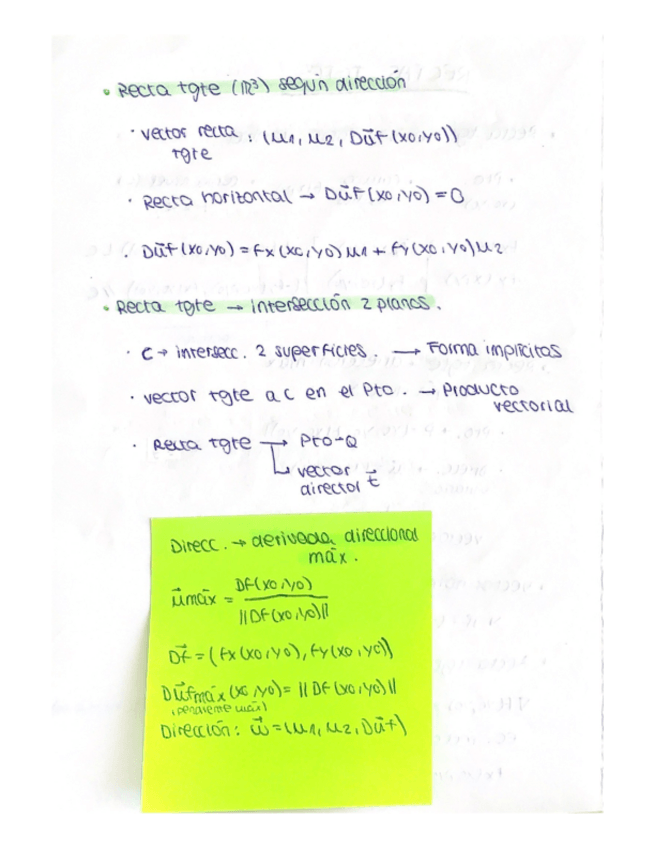 • Recta tgte (R³) según dirección
· vector recta tgte : (μ1, μ2, Dūf (x0,y0))
· Recta horizontal → Dūf (x0,y0) = 0
· Dūf (x0,y0) = fx (x0,y0) μ1 + fy (x0,y0) μ2
• Recta tgte → intersección 2 planos.
· C → intersecc. 2 superficies. → Forma implícitas
· vector tgte a C en el Pto. → Producto
vectorial
· Recta tgte → Pto-Q
↳ vector
director t⃗
Direcc. → derivada direccional
máx.
μ⃗máx = Df(x0,y0) / ||Df(x0,y0)||
Df⃗ = (fx(x0,y0), fy(x0,y0))
Dūfmáx (x0,y0) = ||Df(x0,y0)||
(pendiente máx)
Dirección: w⃗ = (μ1, μ2, Dūf)